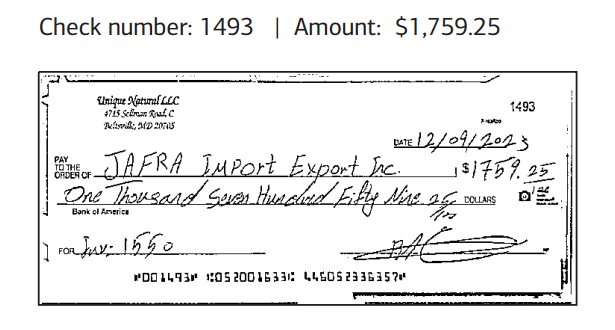 Check number: 1493 | Amount: $1,759.25
Unique Natural LLC
4715 Sellman Road, C
Beltsville, MD 20705
1493
DATE 12/09/2023
PAY TO THE ORDER OF JAFRA IMPort Export Inc. $1759.25
One Thousand Seven Hundred Fifty Nine 25/100 DOLLARS
Bank of America
FOR Inv: 1550
⑈001493⑈ ⑆052001633⑆ 446052336357⑈